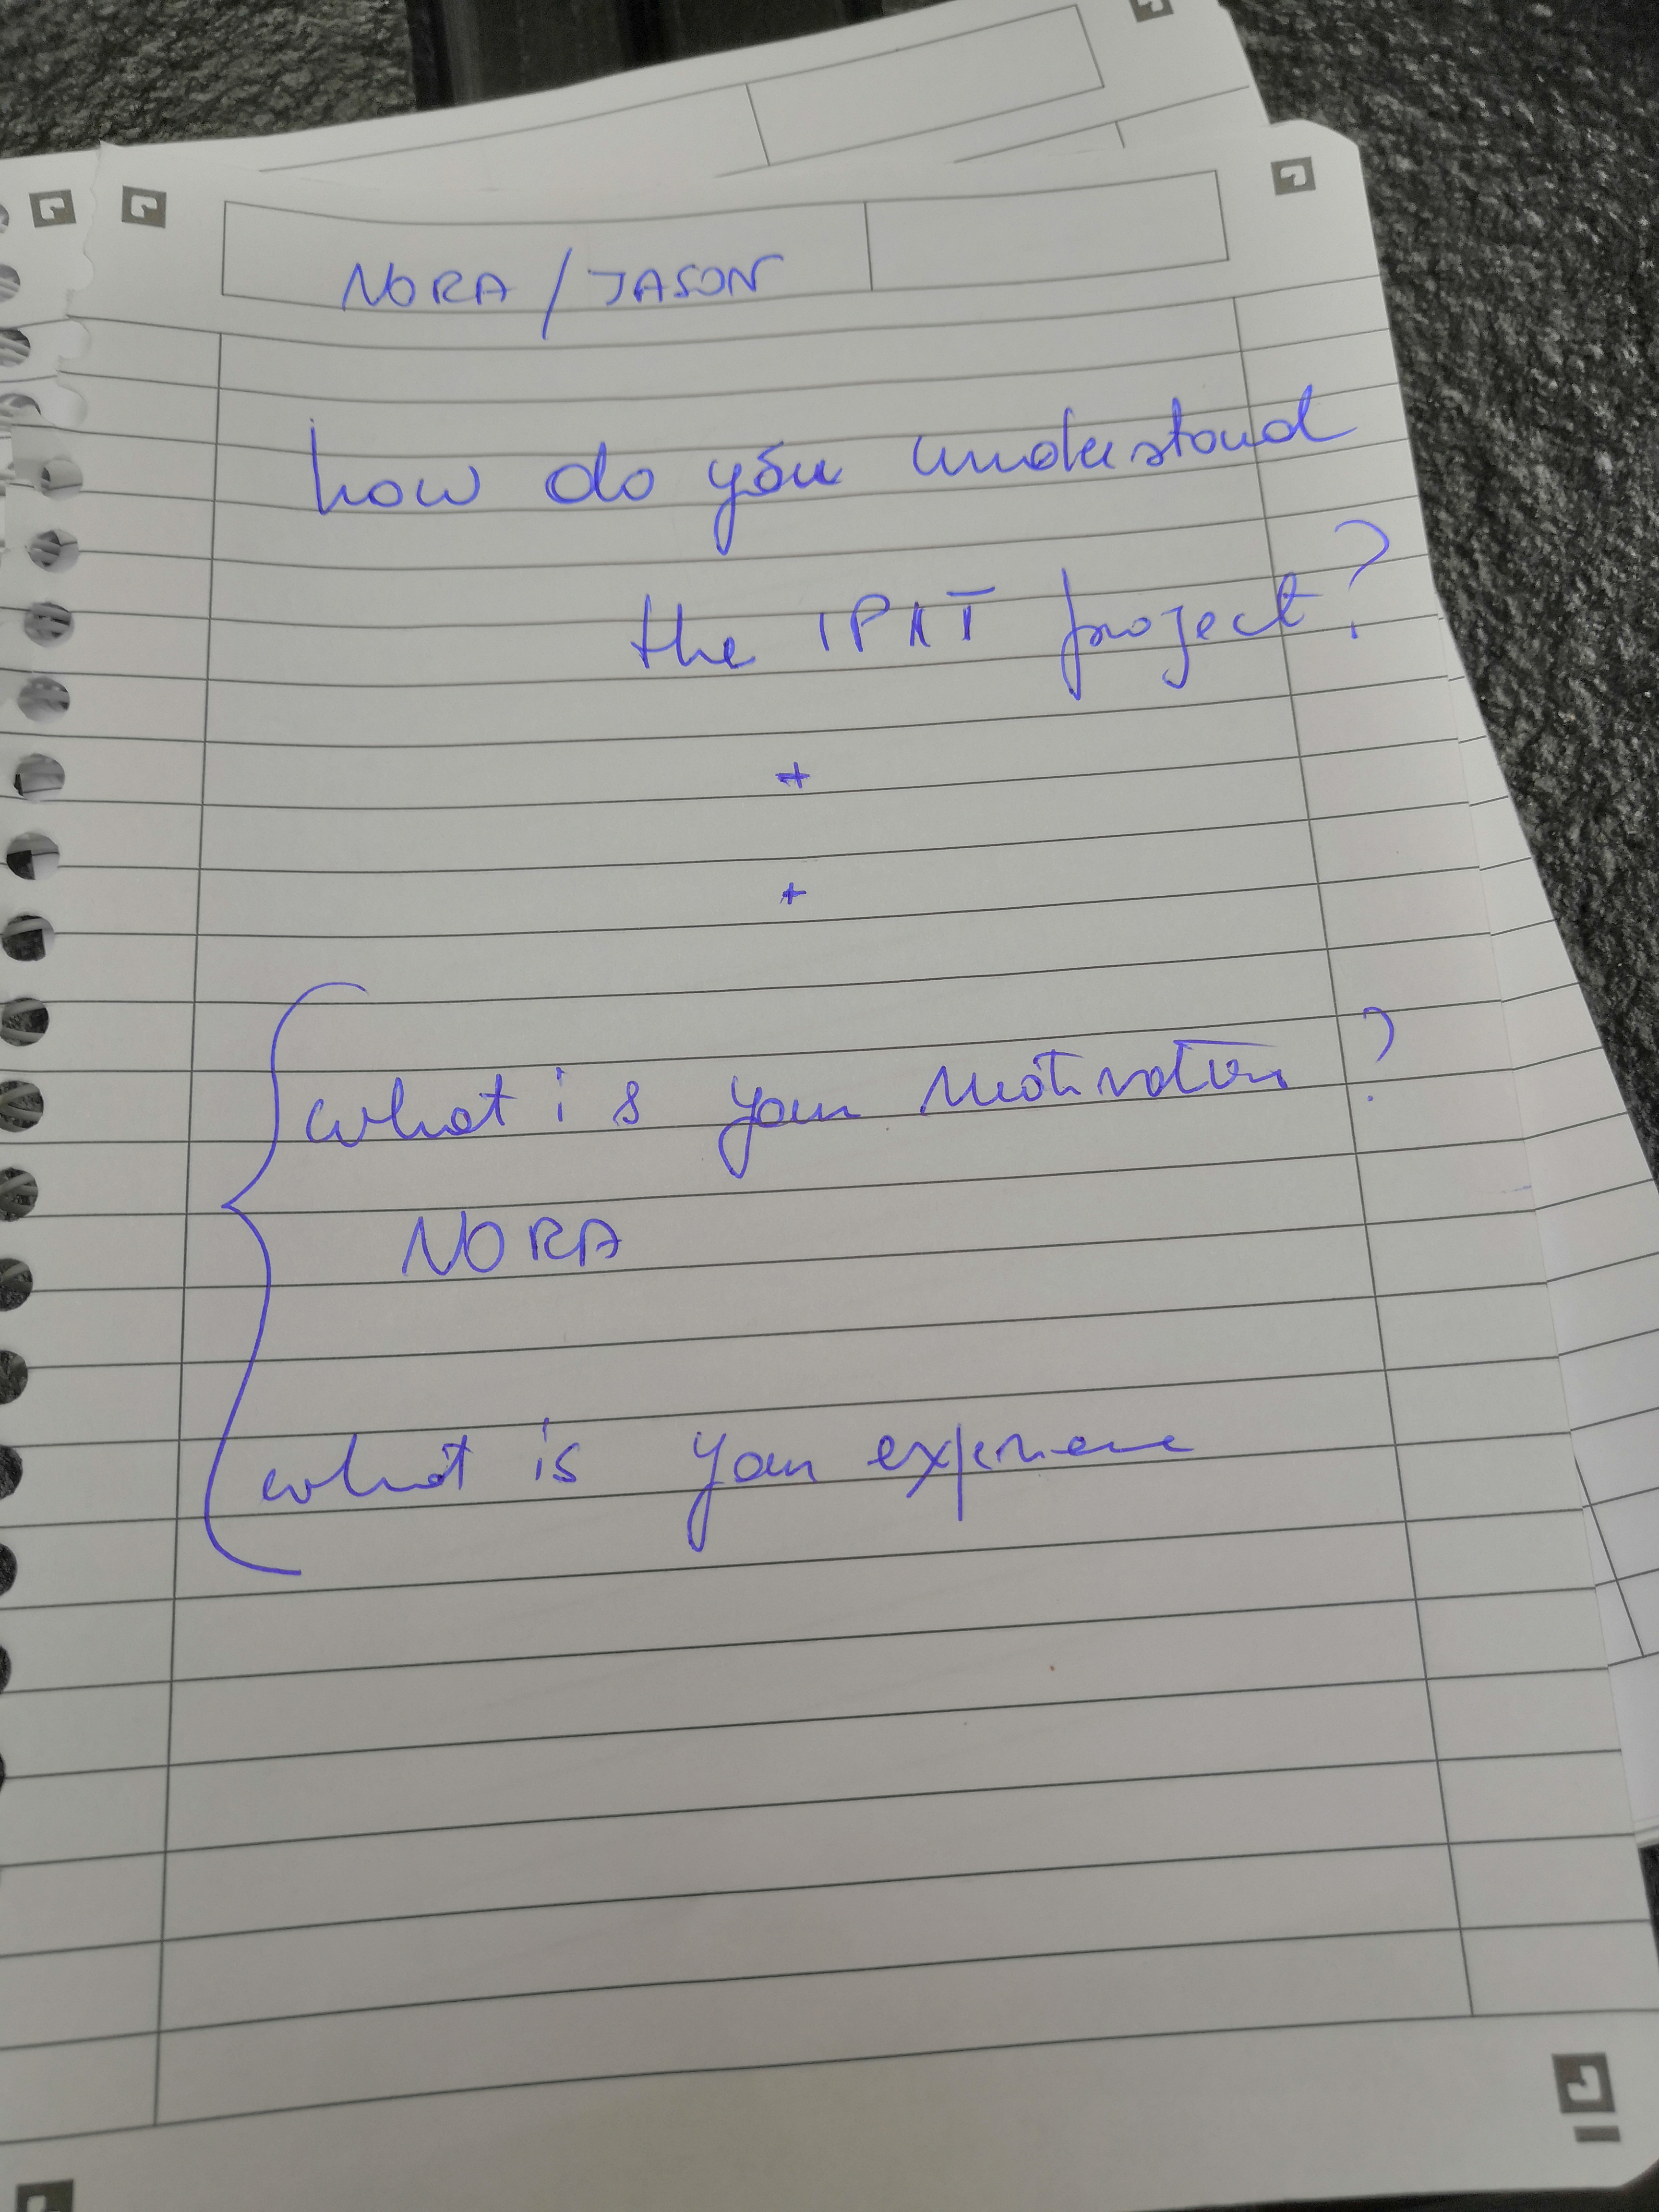 NORA / JASON
how do you understand
the IPAT project?
+
+
what is your motivation?
NORA
what is your experience